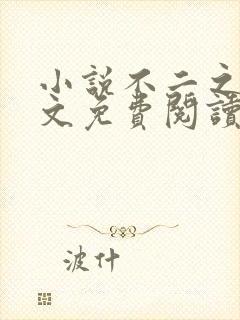 小説不二之
文免費閱讀
波什